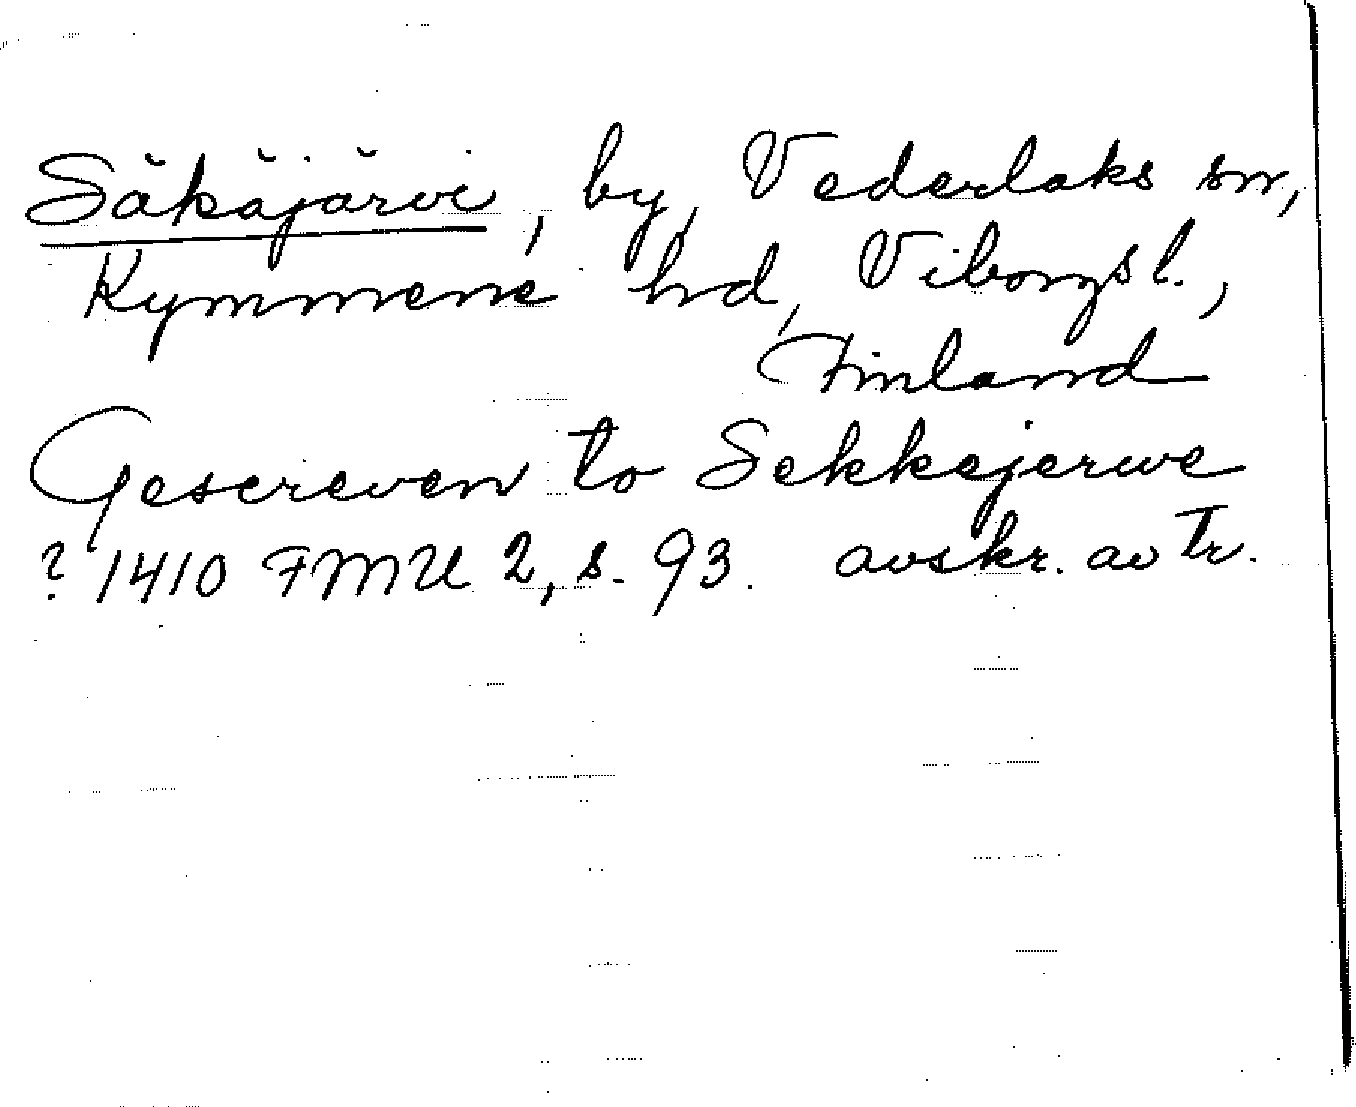 Säkäjärvi, by, Vederlaks sn,
Kymmene hd, Viborgs l.,
Finland
Gescreven to Sekkejerwe
? 1410 FMU 2, s. 93. avskr. av Tr.